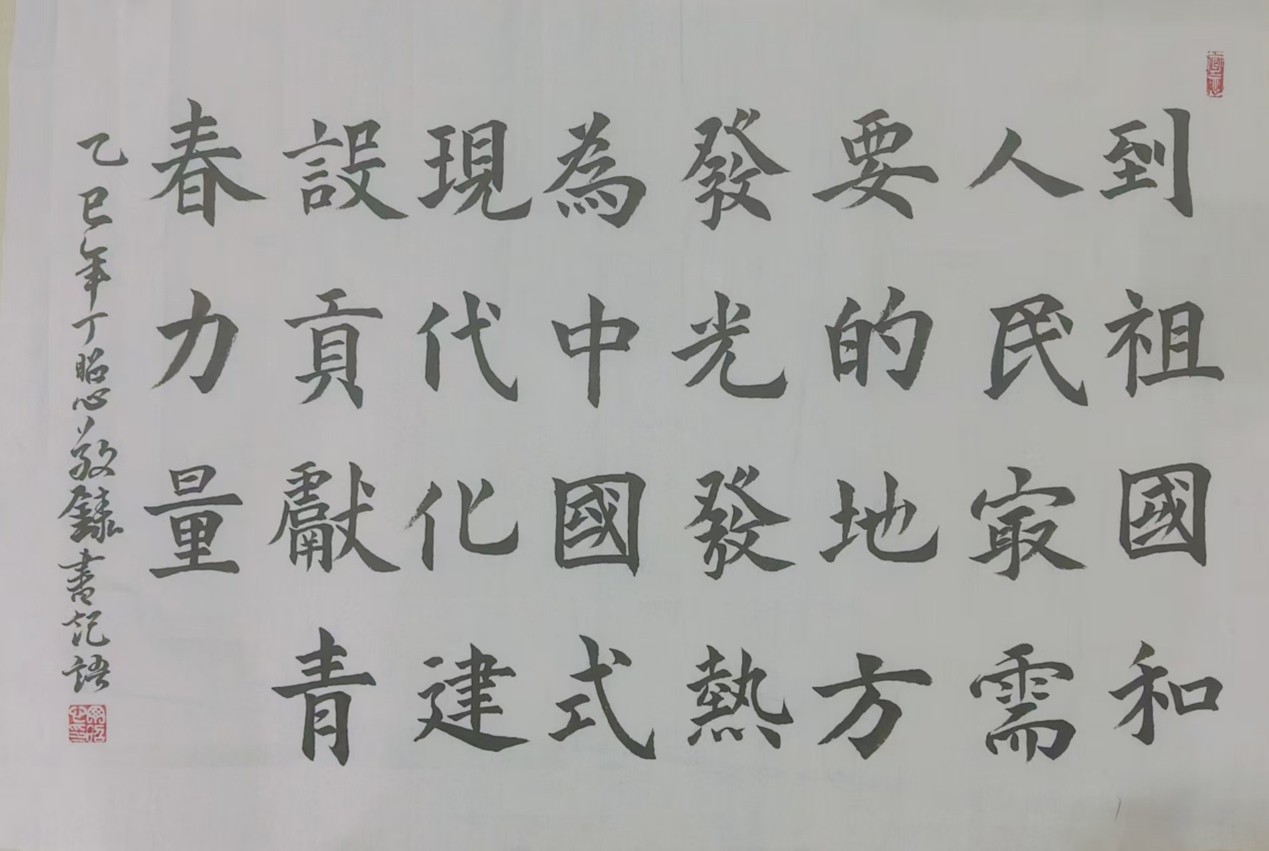 到祖國和
人民冣需
要的地方
發光發熱
為中國式
現代化建
設貢獻青
春力量
乙巳年丁昭心敬錄書記語